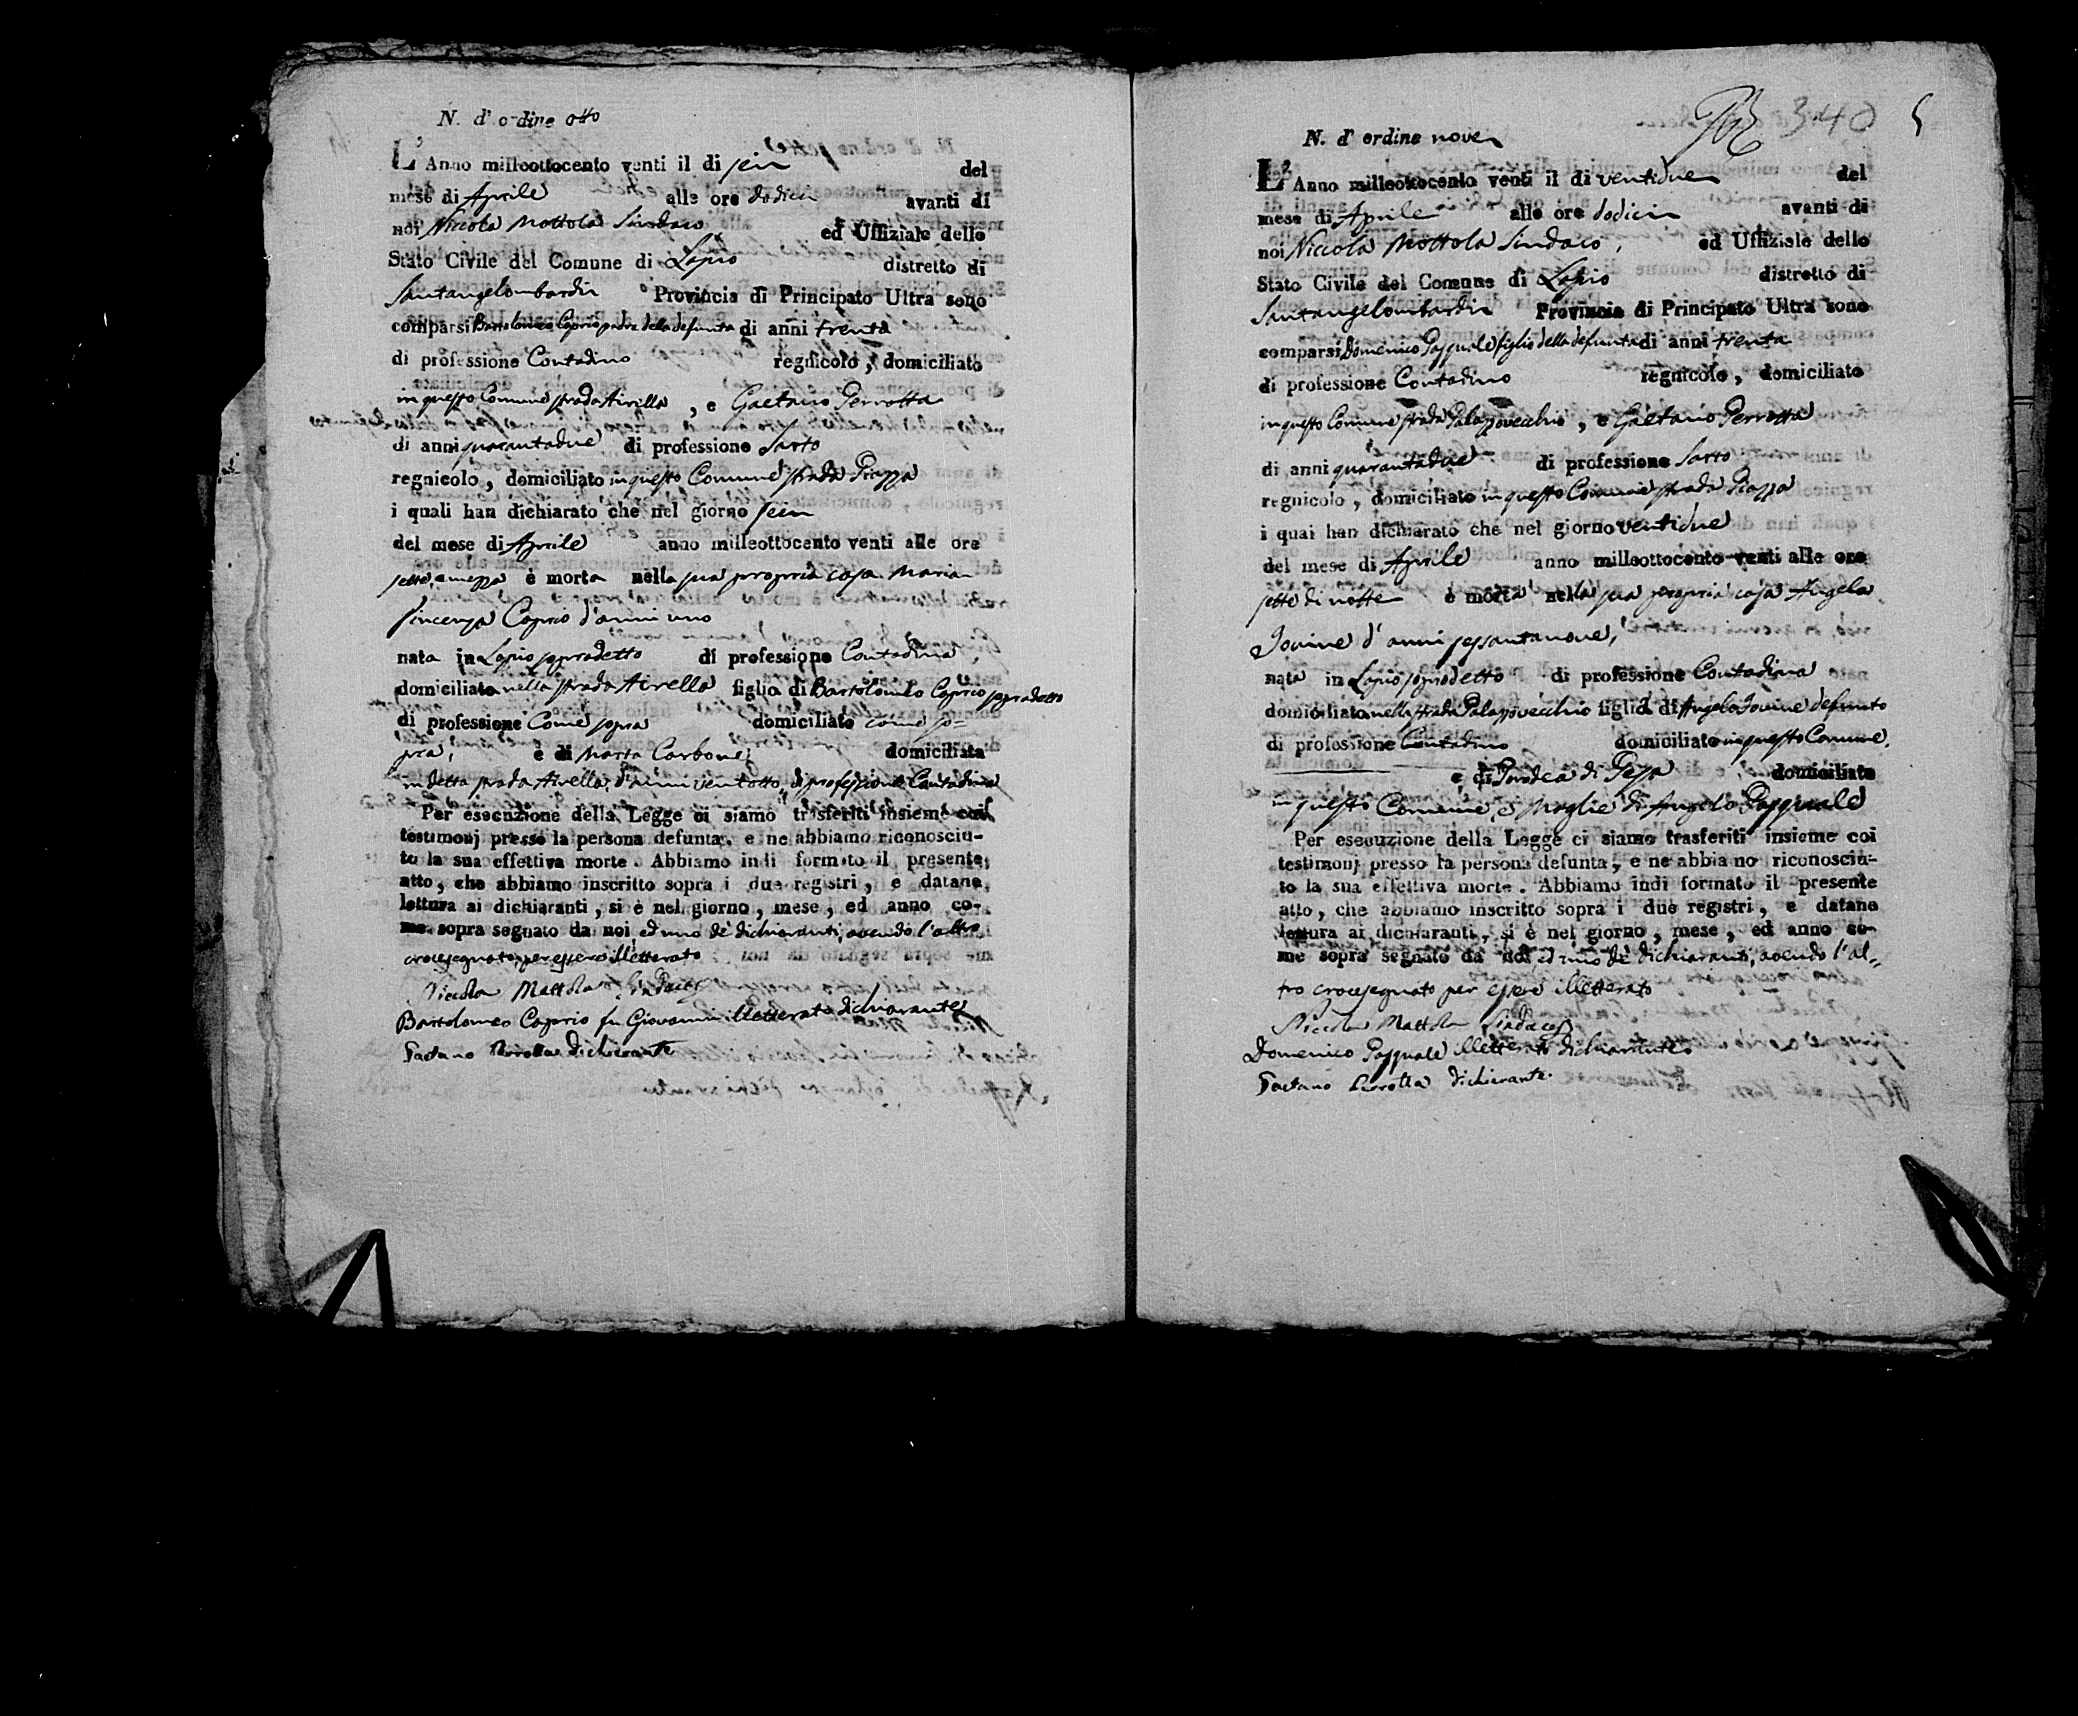 N. d' ordine otto
L' Anno milleottocento venti il di sei del
mese di Aprile alle ore dodici avanti di
noi Niccola Mottola Sindaco ed Uffiziale dello
Stato Civile del Comune di Lapio distretto di
Santangelombardi Provincia di Principato Ultra sono
comparsi Bartolomeo Caprio padre della defunta di anni trenta
di professione Contadino regnicolo, domiciliato
in questo Comune strada Airella, e Gaetano Perrotta
di anni quarantadue di professione Sarto
regnicolo, domiciliato in questo Comune strada Piazza
i quali han dichiarato che nel giorno sei
del mese di Aprile anno milleottocento venti alle ore
sette, e mezza è morta nella sua propria casa Maria
Vincenza Caprio d'anni uno
nata in Lapio sopradetto di professione Contadina,
domiciliata nella strada Airella figlia di Bartolomeo Caprio sopradetto
di professione Come sopra domiciliato come so=
pra, e di Marta Carbone, domiciliata
in detta strada Airella, d'anni ventotto, di professione Contadina
Per esecuzione della Legge ci siamo trasferiti insieme coi
testimonj presso la persona defunta, e ne abbiamo riconosciu-
to la sua effettiva morte. Abbiamo indi formato il presente
atto, che abbiamo inscritto sopra i due registri, e datane
lettura ai dichiaranti, si è nel giorno, mese, ed anno co-
me sopra segnato da noi ed uno de' dichiaranti, avendo l'altro
crocesegnato per essere illetterato
Niccola Mottola Sindaco
Bartolomeo Caprio fu Giovanni illetterato dichiarante
Gaetano Perrotta dichiarante
340 5
N. d' ordine nove
L' Anno milleottocento venti il di ventidue del
mese di Aprile alle ore dodici avanti di
noi Niccola Mottola Sindaco, ed Uffiziale dello
Stato Civile del Comune di Lapio distretto di
Santangelombardi Provincia di Principato Ultra sono
comparsi Domenico Pasquale figlio della defunta di anni trenta
di professione Contadino regnicolo, domiciliato
in questo Comune strada Palazzovecchio, e Gaetano Perrotta
di anni quarantadue di professione Sarto
regnicolo, domiciliato in questo Comune strada Piazza
i quai han dichiarato che nel giorno ventidue
del mese di Aprile anno milleottocento venti alle ore
sette di notte è morta nella sua propria casa Angela
Iovine d'anni sessantanove,
nata in Lapio sopradetto di professione Contadina
domiciliata nella strada Palazzovecchio figlia di Angelo Iovine defunto
di professione Contadino domiciliato in questo Comune,
e di di domiciliata
in questo Comune, e Moglie di Angelo Pasquale
Per esecuzione della Legge ci siamo trasferiti insieme coi
testimonj presso la persona defunta, e ne abbiano riconosciu-
to la sua effettiva morte. Abbiamo indi formato il presente
atto, che abbiamo inscritto sopra i due registri, e datane
lettura ai dichiaranti, si è nel giorno, mese, ed anno co-
me sopra segnato da noi, ed uno de' dichiaranti, avendo l'al=
tro crocesegnato per essere illetterato
Niccola Mottola Sindaco
Domenico Pasquale illetterato dichiarante
Gaetano Perrotta dichiarante.